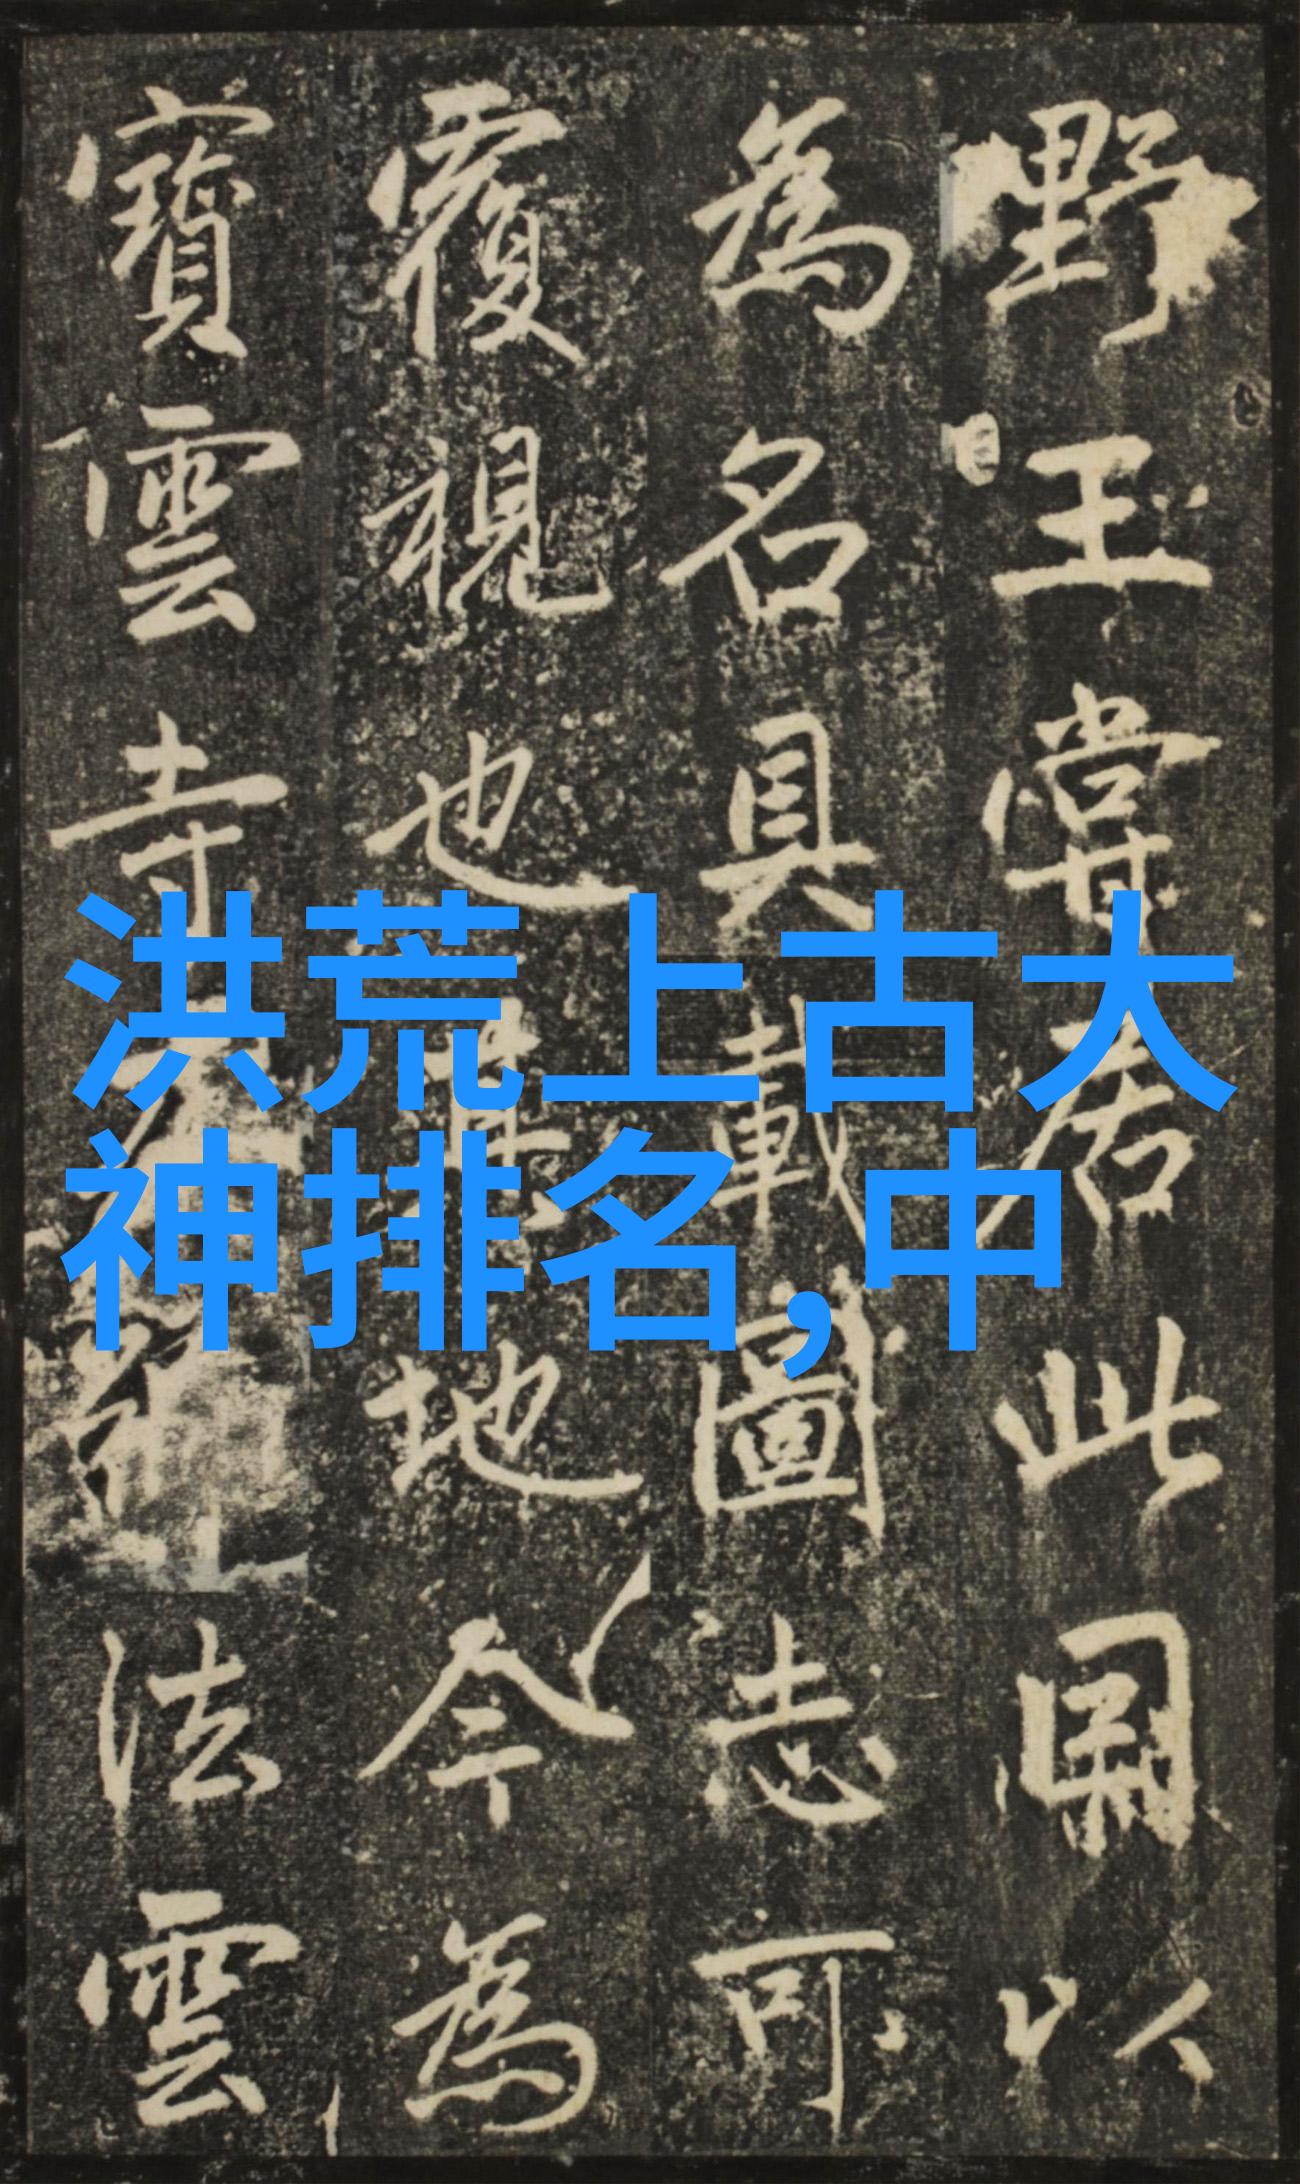 野王甞居此以
為名具載圖志可
覆視也其地今為
寶雲寺法雲
洪荒上古大
神排名,中